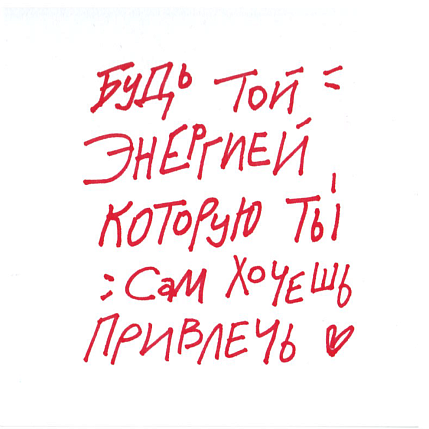 БУДЬ ТОЙ =
ЭНЕРГИЕЙ,
КОТОРУЮ ТЫ
: САМ ХОЧЕШЬ
ПРИВЛЕЧЬ ♡